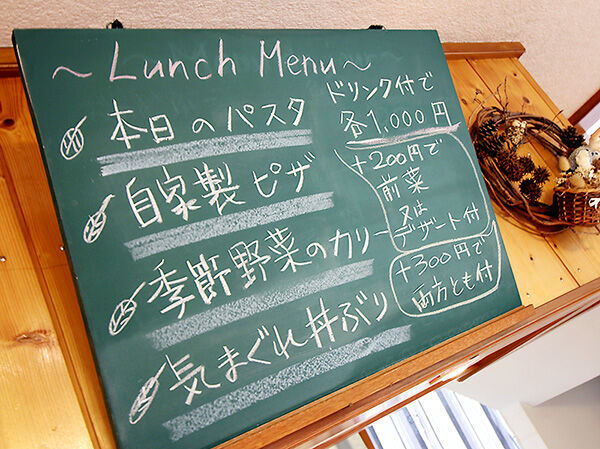 ～Lunch Menu～
本日のパスタ
自家製ピザ
季節野菜のカリー
気まぐれ丼ぶり
ドリンク付で
各1,000円
+200円で
前菜
又は
デザート付
+300円で
両方とも付